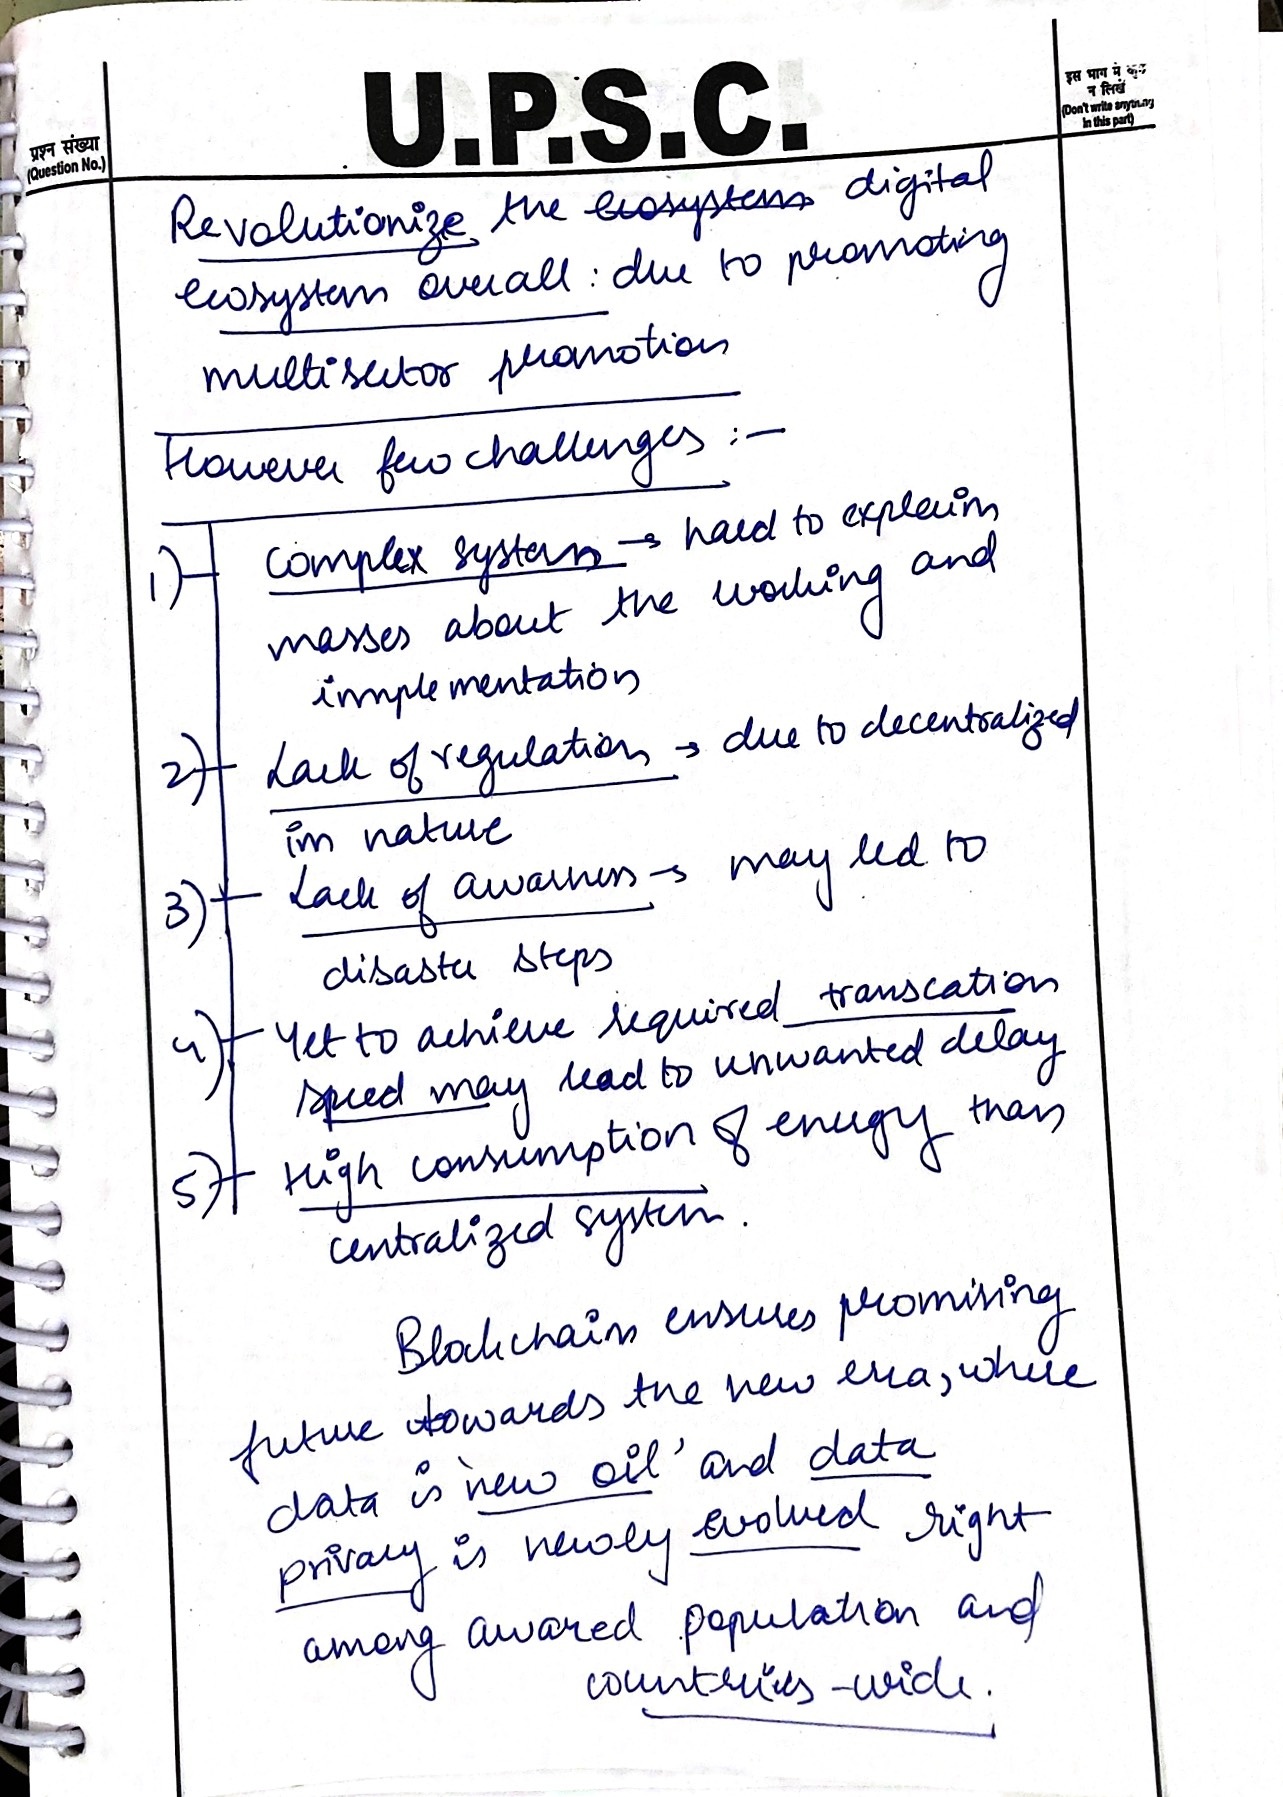 U.P.S.C.
प्रश्न संख्या
(Question No.)
इस भाग में कुछ
न लिखें
(Don't write anything
in this part)
Revolutionize the ecosystem digital
ecosystem overall : due to promoting
multisector promotion
However few challenges :-
1) Complex system → hard to explain
masses about the working and
implementation
2) Lack of regulation → due to decentralized
in nature
3) Lack of awarness → may led to
disaster steps
4) Yet to achieve required transcation
speed may lead to unwanted delay
5) High consumption of energy than
centralized system.
Blockchain ensures promising
future towards the new era, where
data is 'new oil' and data
privacy is newly evolved right
among awared population and
countries-wide.